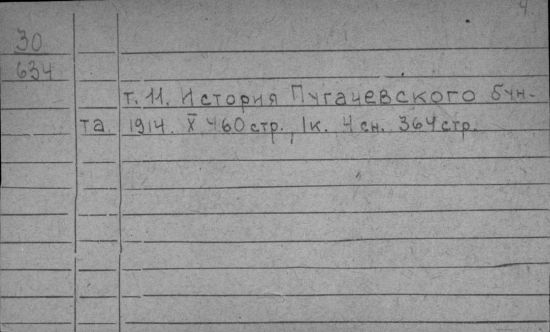 4
30
634
т. 11. История Пугачевского бун-
та. 1914. X 460 стр., 1к. 4 сн. 364 стр.